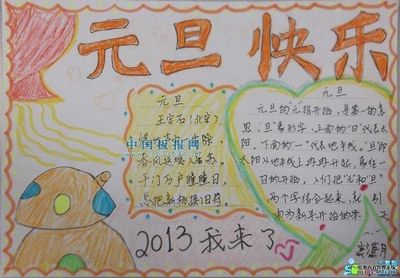 元旦快乐
元旦
王安石(北宋)
中国板报网
春风送暖入屠苏。
千门万户曈曈日,
总把新桃换旧符。
元旦
元旦的"元"指开始,是第一的意
思;旦象形字,上面的"日"代表太
阳,下面的"一"代表地平线。"旦"即
太阳从地平线上冉冉升起,象征一
日的开始。人们把"元"和"旦"
两个字结合起来,就引
天
2013我来了